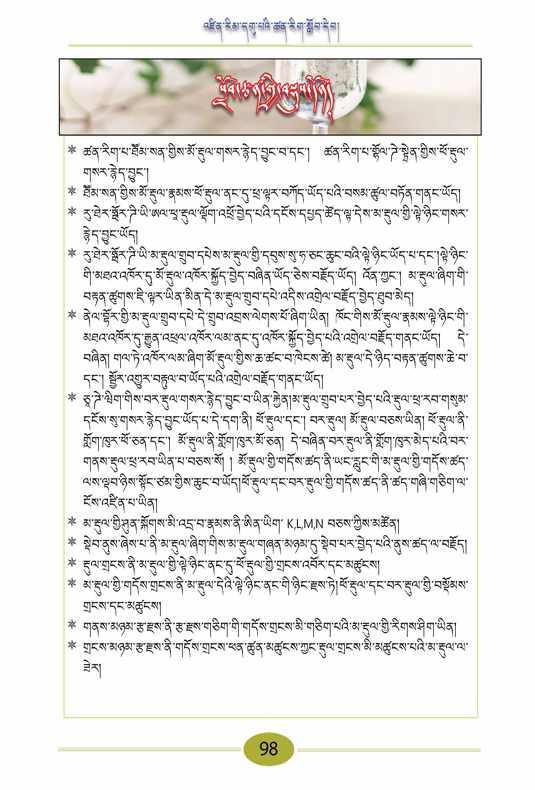 འཛིན་རིམ་དགུ་པའི་ཚན་རིག་སློབ་དེབ།
* ཚན་རིག་པ་ཐོམ་སན་གྱིས་མོ་རྡུལ་གསར་རྙེད་བྱུང་བ་དང་། ཚན་རིག་པ་གྷོལ་ཌེ་སྟེན་གྱིས་ཕོ་རྡུལ་
གསར་རྙེད་བྱུང་།
* ཐོམ་སན་གྱིས་མོ་རྡུལ་རྣམས་ཕོ་རྡུལ་ནང་དུ་ཕྲ་ལྟར་བཀོད་ཡོད་པའི་བསམ་ཚུལ་བཏོན་གནང་ཡོད།
* རུ་ཐེར་སྥོར་ཌི་ཡི་ཨལ་ཕཱ་རྡུལ་ལྷོག་འཕྲོ་བྱེད་པའི་དངོས་དཔྱད་ཚོད་ལྟ་དེས་མ་རྡུལ་གྱི་ལྟེ་ཉིང་གསར་
རྙེད་བྱུང་ཡོད།
* རུ་ཐེར་སྥོར་ཌི་ཡི་མ་རྡུལ་གྲུབ་དཔེས་མ་རྡུལ་གྱི་དབུས་སུ་ཧ་ཅང་ཆུང་བའི་ལྟེ་ཉིང་ཡོད་པ་དང་། ལྟེ་ཉིང་
གི་མཐའ་འཁོར་དུ་མོ་རྡུལ་འཁོར་སྐྱོད་བྱེད་བཞིན་ཡོད་ཅེས་བརྗོད་ཡོད། འོན་ཀྱང་། མ་རྡུལ་ཞིག་གི་
བརྟན་ཚུགས་ཇི་ལྟར་ཡིན་མིན་དེ་མ་རྡུལ་གྲུབ་དཔེ་འདིས་འགྲེལ་བརྗོད་བྱེད་ཐུབ་མེད།
* ནེལ་བྷོར་གྱི་མ་རྡུལ་གྲུབ་དཔེ་དེ་གྲུབ་འབྲས་ལེགས་པོ་ཞིག་ཡིན། ཁོང་གིས་མོ་རྡུལ་རྣམས་ལྟེ་ཉིང་གི་
མཐའ་འཁོར་དུ་རྒྱུན་འཕྲལ་འཁོར་ལམ་ནང་དུ་འཁོར་སྐྱོད་བྱེད་པའི་འགྲེལ་བརྗོད་གནང་ཡོད། དེ་
བཞིན། གལ་ཏེ་འཁོར་ལམ་ཞིག་མོ་རྡུལ་གྱིས་ཆ་ཚང་བ་ཁེངས་ཚེ། མ་རྡུལ་དེ་ཉིད་བརྟན་ཚུགས་ཆེ་བ་
དང་། སྦྱོར་འགྱུར་བརྟུལ་བ་ཡོད་པའི་འགྲེལ་བརྗོད་གནང་ཡོད།
* ཅཱ་ཌེ་ཝིག་གིས་བར་རྡུལ་གསར་རྙེད་བྱུང་བ་ཡིན་རྐྱེན། མ་རྡུལ་གྲུབ་པར་བྱེད་པའི་རྡུལ་ཕྲ་རབ་གསུམ་
དངོས་སུ་གསར་རྙེད་བྱུང་ཡོད་པ་དེ་དག་ནི། ཕོ་རྡུལ་དང་། བར་རྡུལ། མོ་རྡུལ་བཅས་ཡིན། ཕོ་རྡུལ་ནི་
གློག་ཁུར་ཕོ་ཅན་དང་། མོ་རྡུལ་ནི་གློག་ཁུར་མོ་ཅན། དེ་བཞིན་བར་རྡུལ་ནི་གློག་ཁུར་མེད་པའི་བར་
གནས་རྡུལ་ཕྲ་རབ་ཡིན་པ་བཅས་སོ། ། མོ་རྡུལ་གྱི་གདོས་ཚད་ནི་ཡང་རླུང་གི་མ་རྡུལ་གྱི་གདོས་ཚད་
ལས་ལྡབ་ཉིས་སྟོང་ཙམ་གྱིས་ཆུང་བ་ཡོད། ཕོ་རྡུལ་དང་བར་རྡུལ་གྱི་གདོས་ཚད་ནི་ཚད་གཞི་གཅིག་ལ་
ངོས་འཛིན་པ་ཡིན།
* མ་རྡུལ་གྱི་ཤུན་སྐོགས་མི་འདྲ་བ་རྣམས་ནི་ཨིན་ཡིག་ K,L,M,N བཅས་ཀྱིས་མཚོན།
* སྡེབ་ནུས་ཞེས་པ་ནི་མ་རྡུལ་ཞིག་གིས་མ་རྡུལ་གཞན་མཉམ་དུ་སྡེབ་པར་བྱེད་པའི་ནུས་ཚད་ལ་བརྗོད།
* རྡུལ་གྲངས་ནི་མ་རྡུལ་གྱི་ལྟེ་ཉིང་ནང་དུ་ཕོ་རྡུལ་གྱི་གྲངས་འབོར་དང་མཚུངས།
* མ་རྡུལ་གྱི་གདོས་གྲངས་ནི་མ་རྡུལ་དེའི་ལྟེ་ཉིང་ནང་གི་ཉིང་རྫས་ཏེ། ཕོ་རྡུལ་དང་བར་རྡུལ་གྱི་བསྡོམས་
གྲངས་དང་མཚུངས།
* གནས་མཉམ་རྩ་རྫས་ནི་རྩ་རྫས་གཅིག་གི་གདོས་གྲངས་མི་གཅིག་པའི་མ་རྡུལ་གྱི་རིགས་ཤིག་ཡིན།
* གྲངས་མཉམ་རྩ་རྫས་ནི་གདོས་གྲངས་ཕན་ཚུན་མཚུངས་ཀྱང་རྡུལ་གྲངས་མི་མཚུངས་པའི་མ་རྡུལ་ལ་
ཟེར།
98